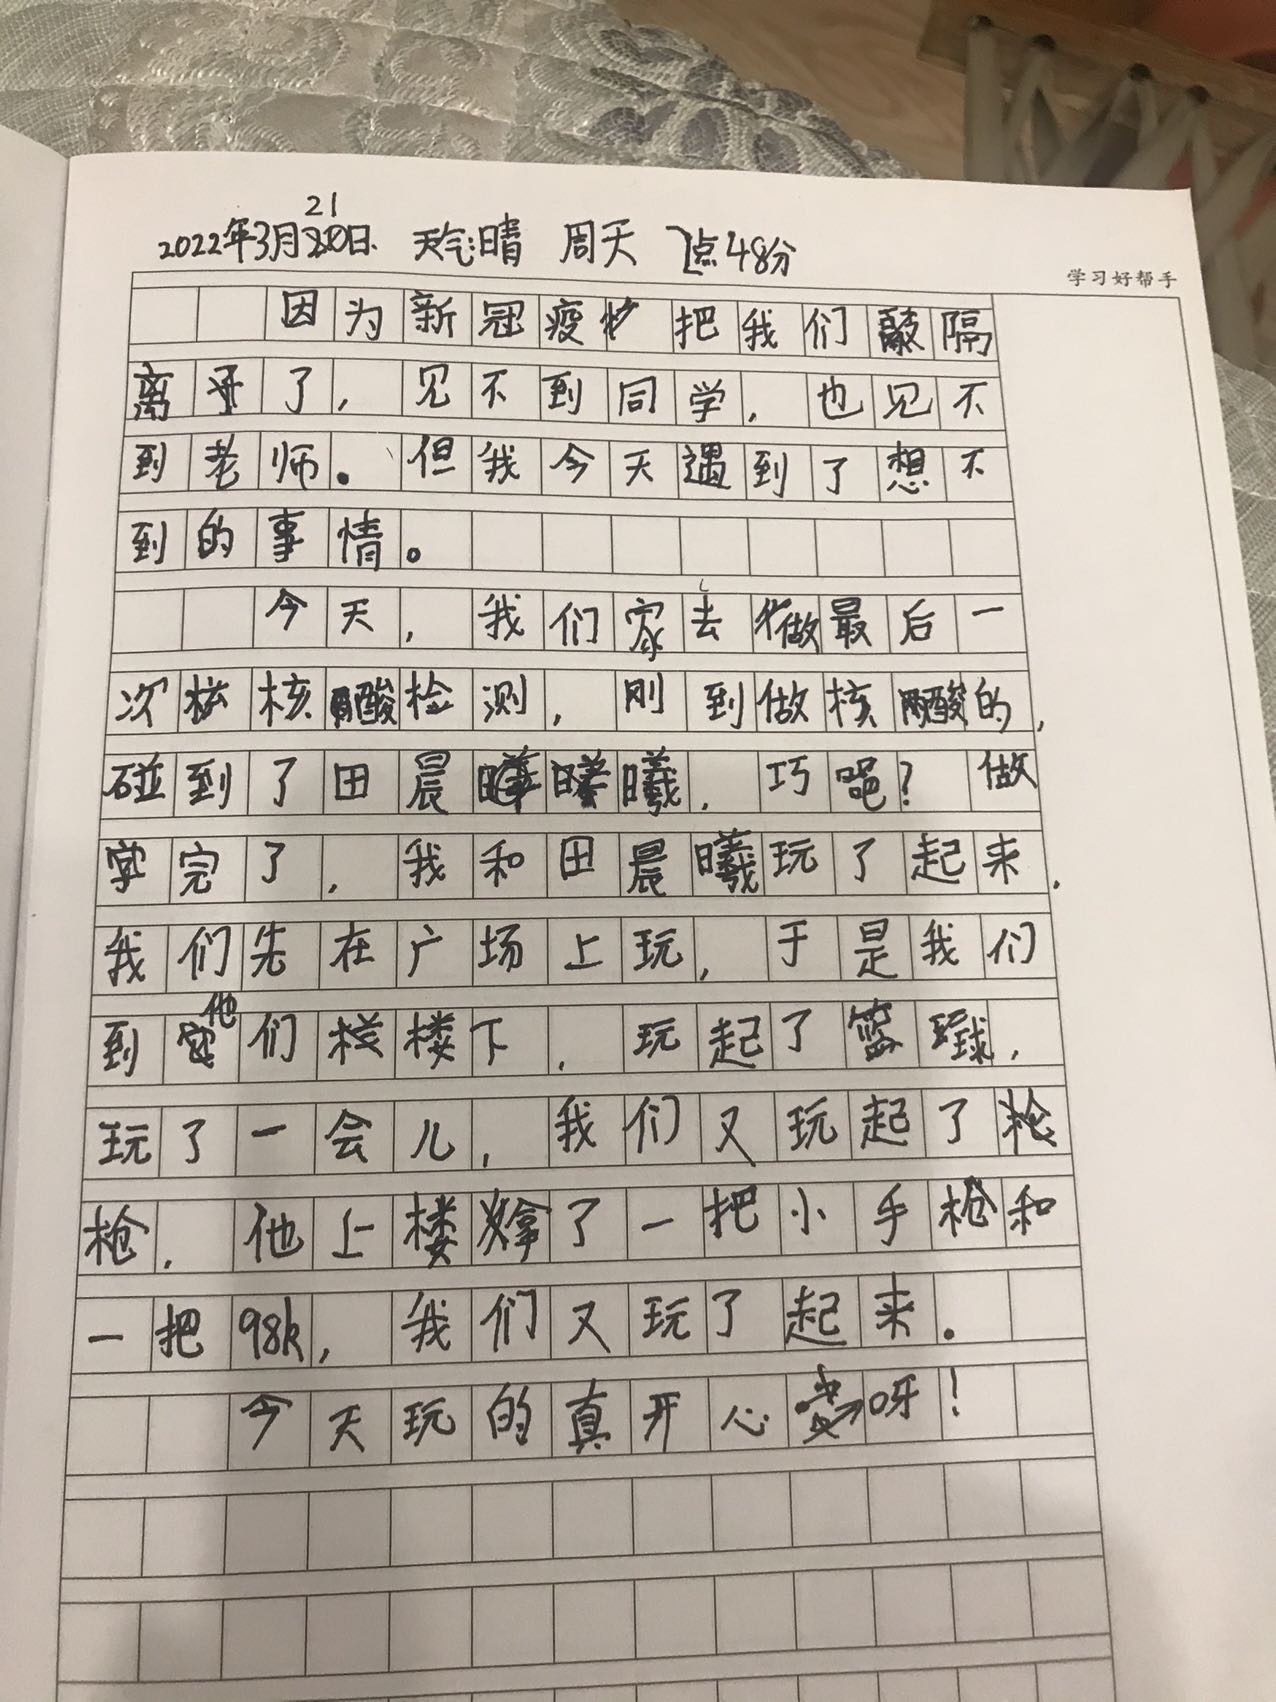 21
2022年3月20日. 天气:晴 周天 点48分
学习好帮手
因为新冠疫 把我们 隔
离 了,见不到同学,也见不
到老师。但我今天遇到了想不
到的事情。
今天,我们家去做最后一
次核酸检测,刚到做核酸的,
碰到了田晨曦,巧吧?做
完了,我和田晨曦玩了起来,
我们先在广场上玩,于是我们
到他们楼下,玩起了篮球,
玩了一会儿,我们又玩起了
枪,他上楼拿了一把小手枪和
一把98k,我们又玩了起来。
今天玩的真开心呀!